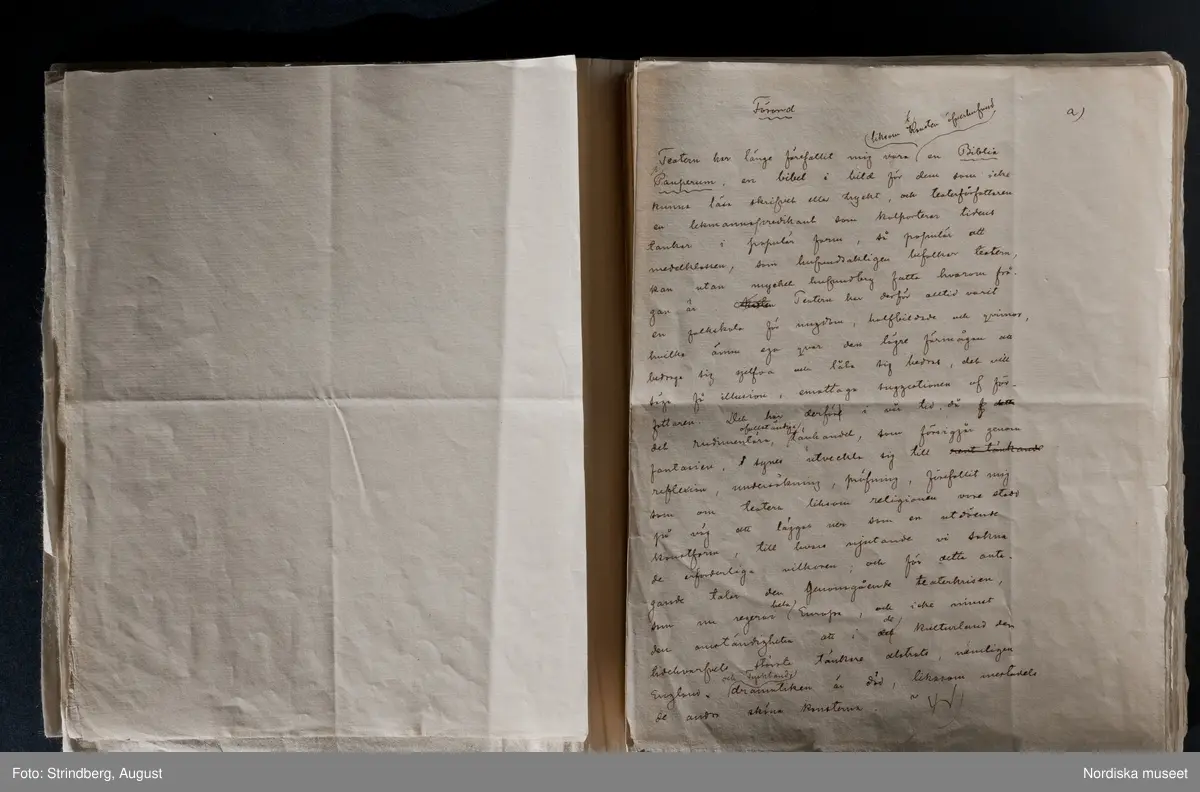 Förord
a)
liksom konsten öfverhufvud
Teatern har länge förefallit mig vara en Biblia
Pauperum, en bibel i bild för dem som icke
kunna läsa skrifvet eller tryckt, och teaterförfattaren
en lekmannapredikant som kolporterar tidens
tankar i populär form, så populär att
medelklassen, som hufvudsakligen befolkar teatern,
kan utan mycket hufvudbry fatta hvarom frå-
gan är. Teatern har derför alltid varit
en folkskola för ungdom, halfbildade och qvinnor,
hvilka ännu ega qvar den lägre förmågan att
bedraga sig sjelfva och låta sig bedras, det vill
säga få illusion, emottaga suggestionen af för-
fattaren. Det har derför i vår tid, då
ofullständiga
det rudimentära, tänkandet, som försiggår genom
fantasien, synes utveckla sig till rent tänkande
reflexion, undersökning, pröfning, förefallit mig
som om teatern liksom religionen vore stadd
på väg att läggas ner som en utdöende
konstform, till hvars njutande vi sakna
de erforderliga vilkoren; och för detta anta-
gande talar den genomgående teaterkrisen,
hela
som nu regerar Europa, och icke minst
de
den omständigheten att i det kulturland der
tidehvarfvets största tänkare alstrats, nämligen
och Tyskland
England, dramatiken är död, liksom mestadels
de andra sköna konsterna.
Foto: Strindberg, August
Nordiska museet